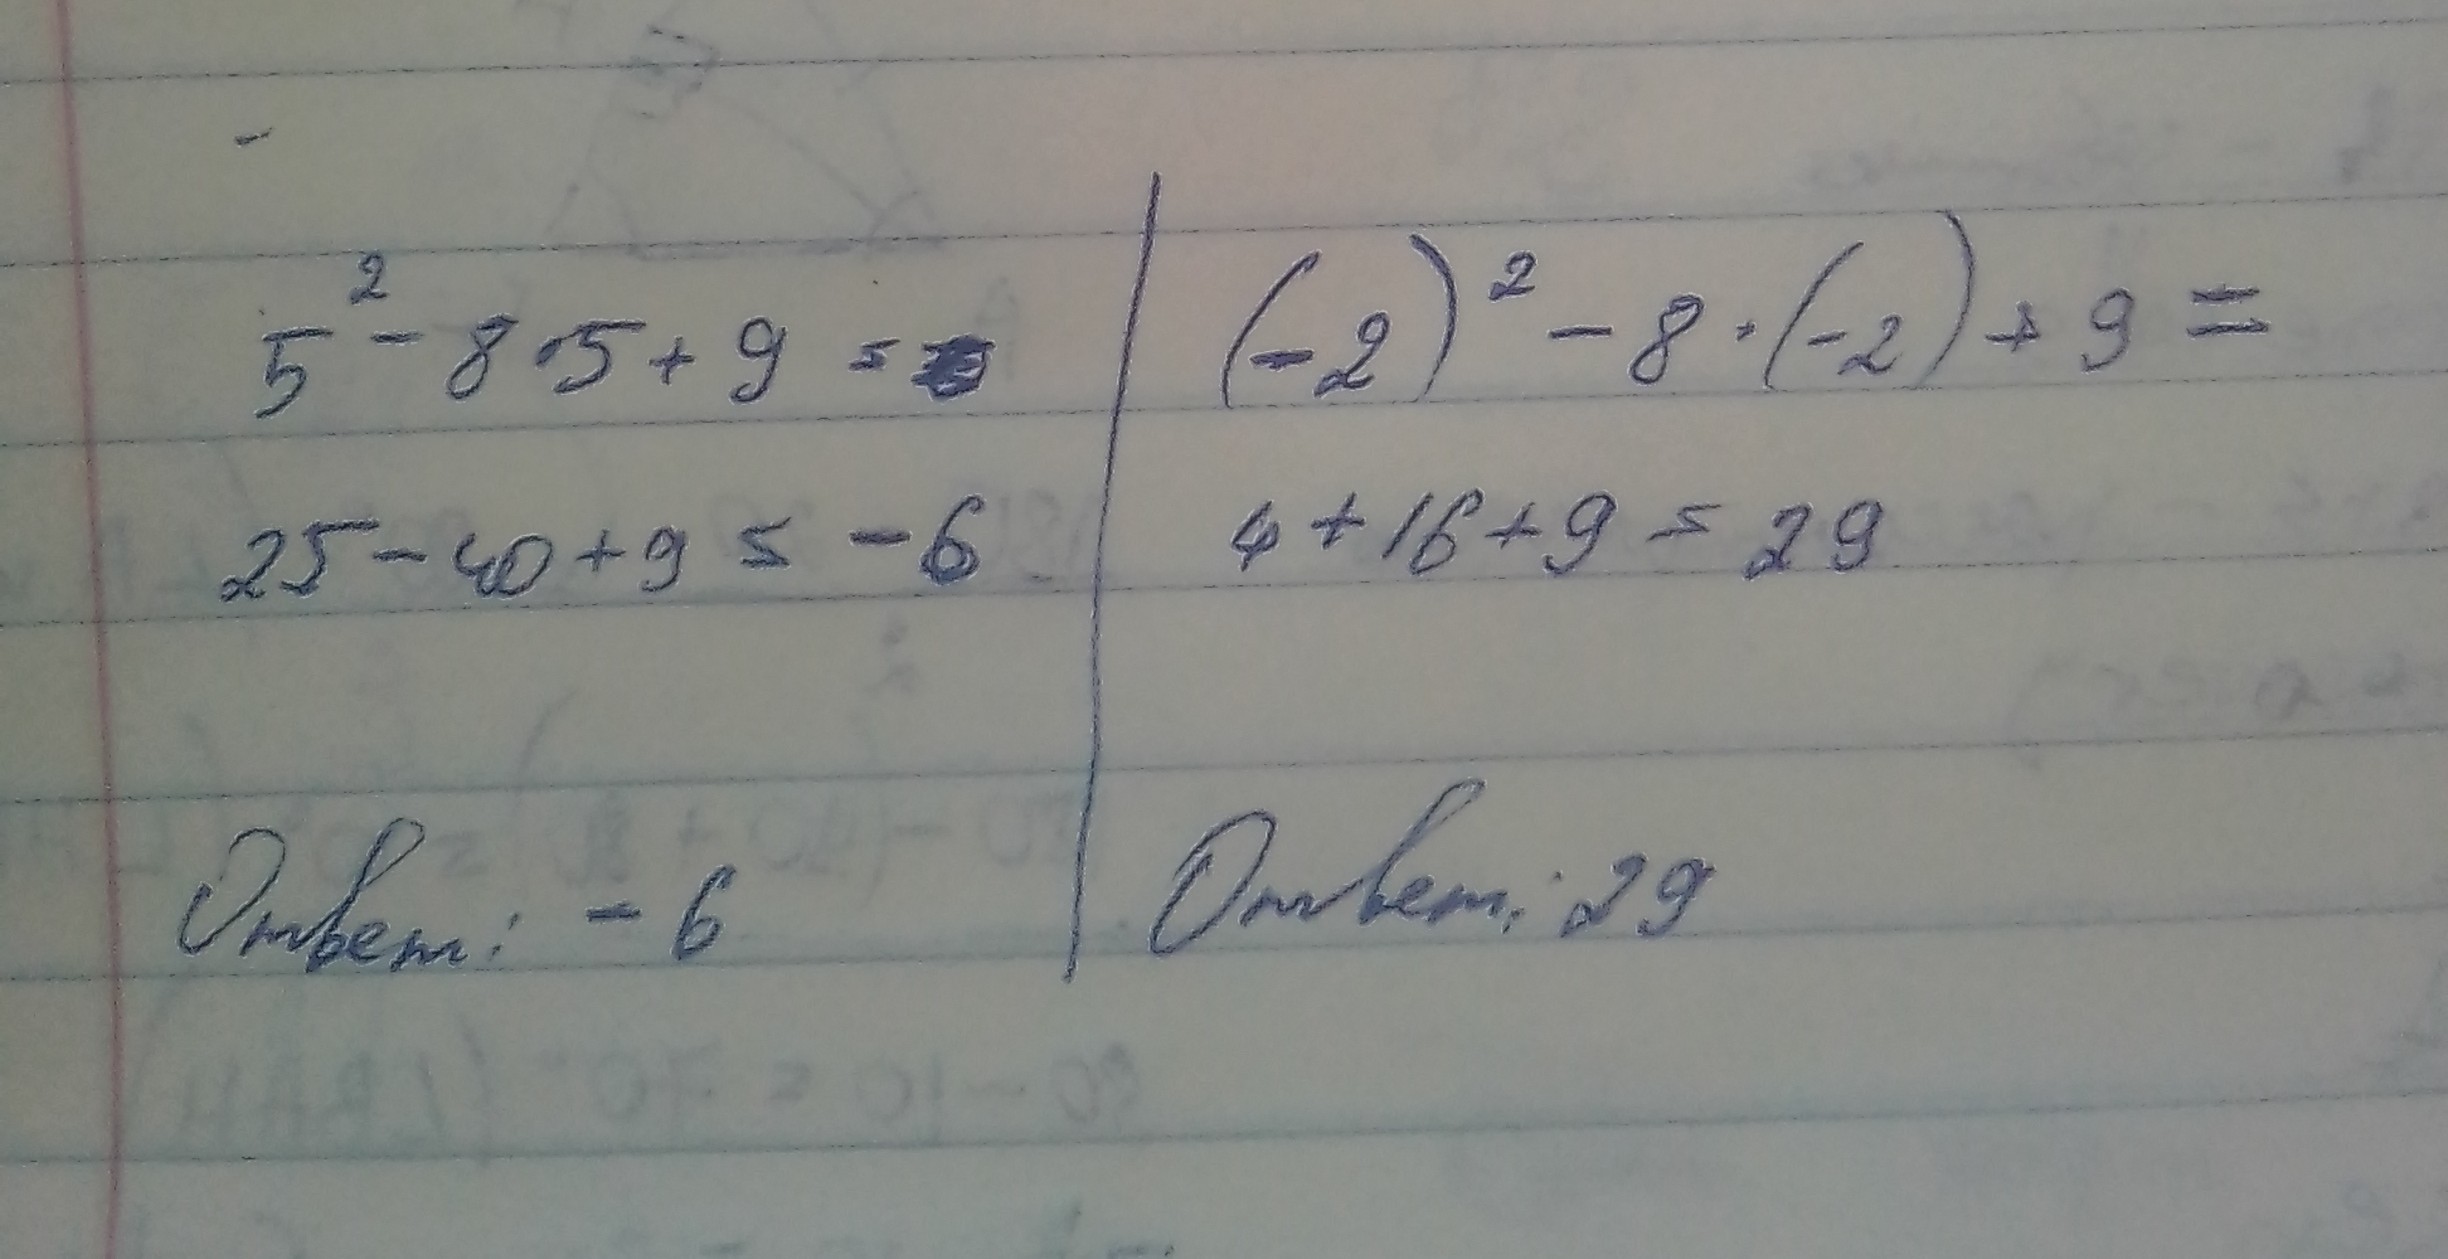 5² - 8·5 + 9 =
25 - 40 + 9 = -6
Ответ: -6
(-2)² - 8·(-2) + 9 =
4 + 16 + 9 = 29
Ответ: 29